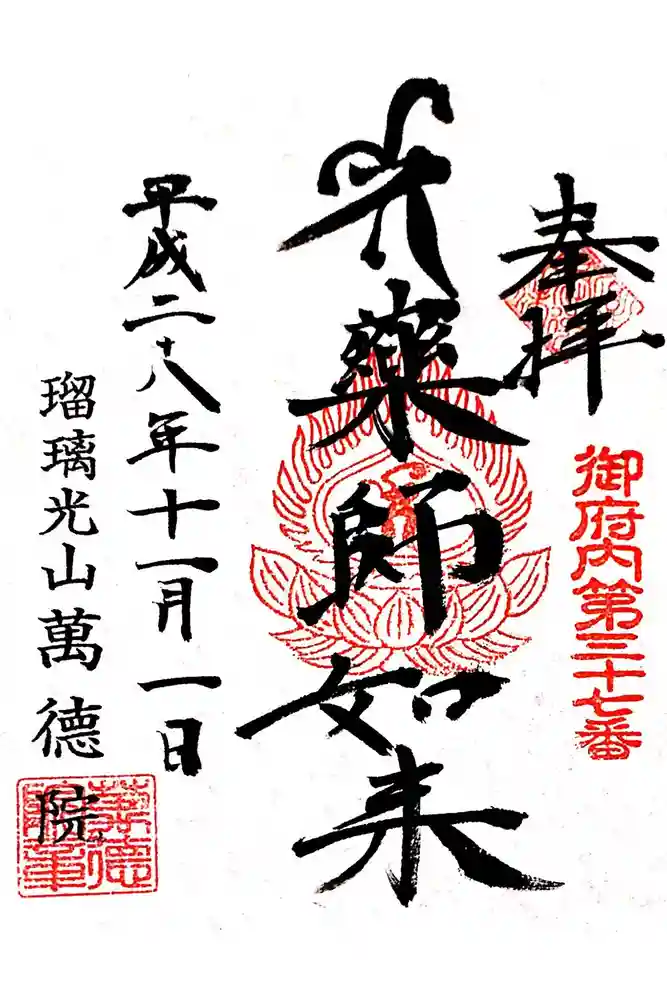 奉拝
御府内第三十七番
薬師如来
平成二十八年十一月一日
瑠璃光山萬德院